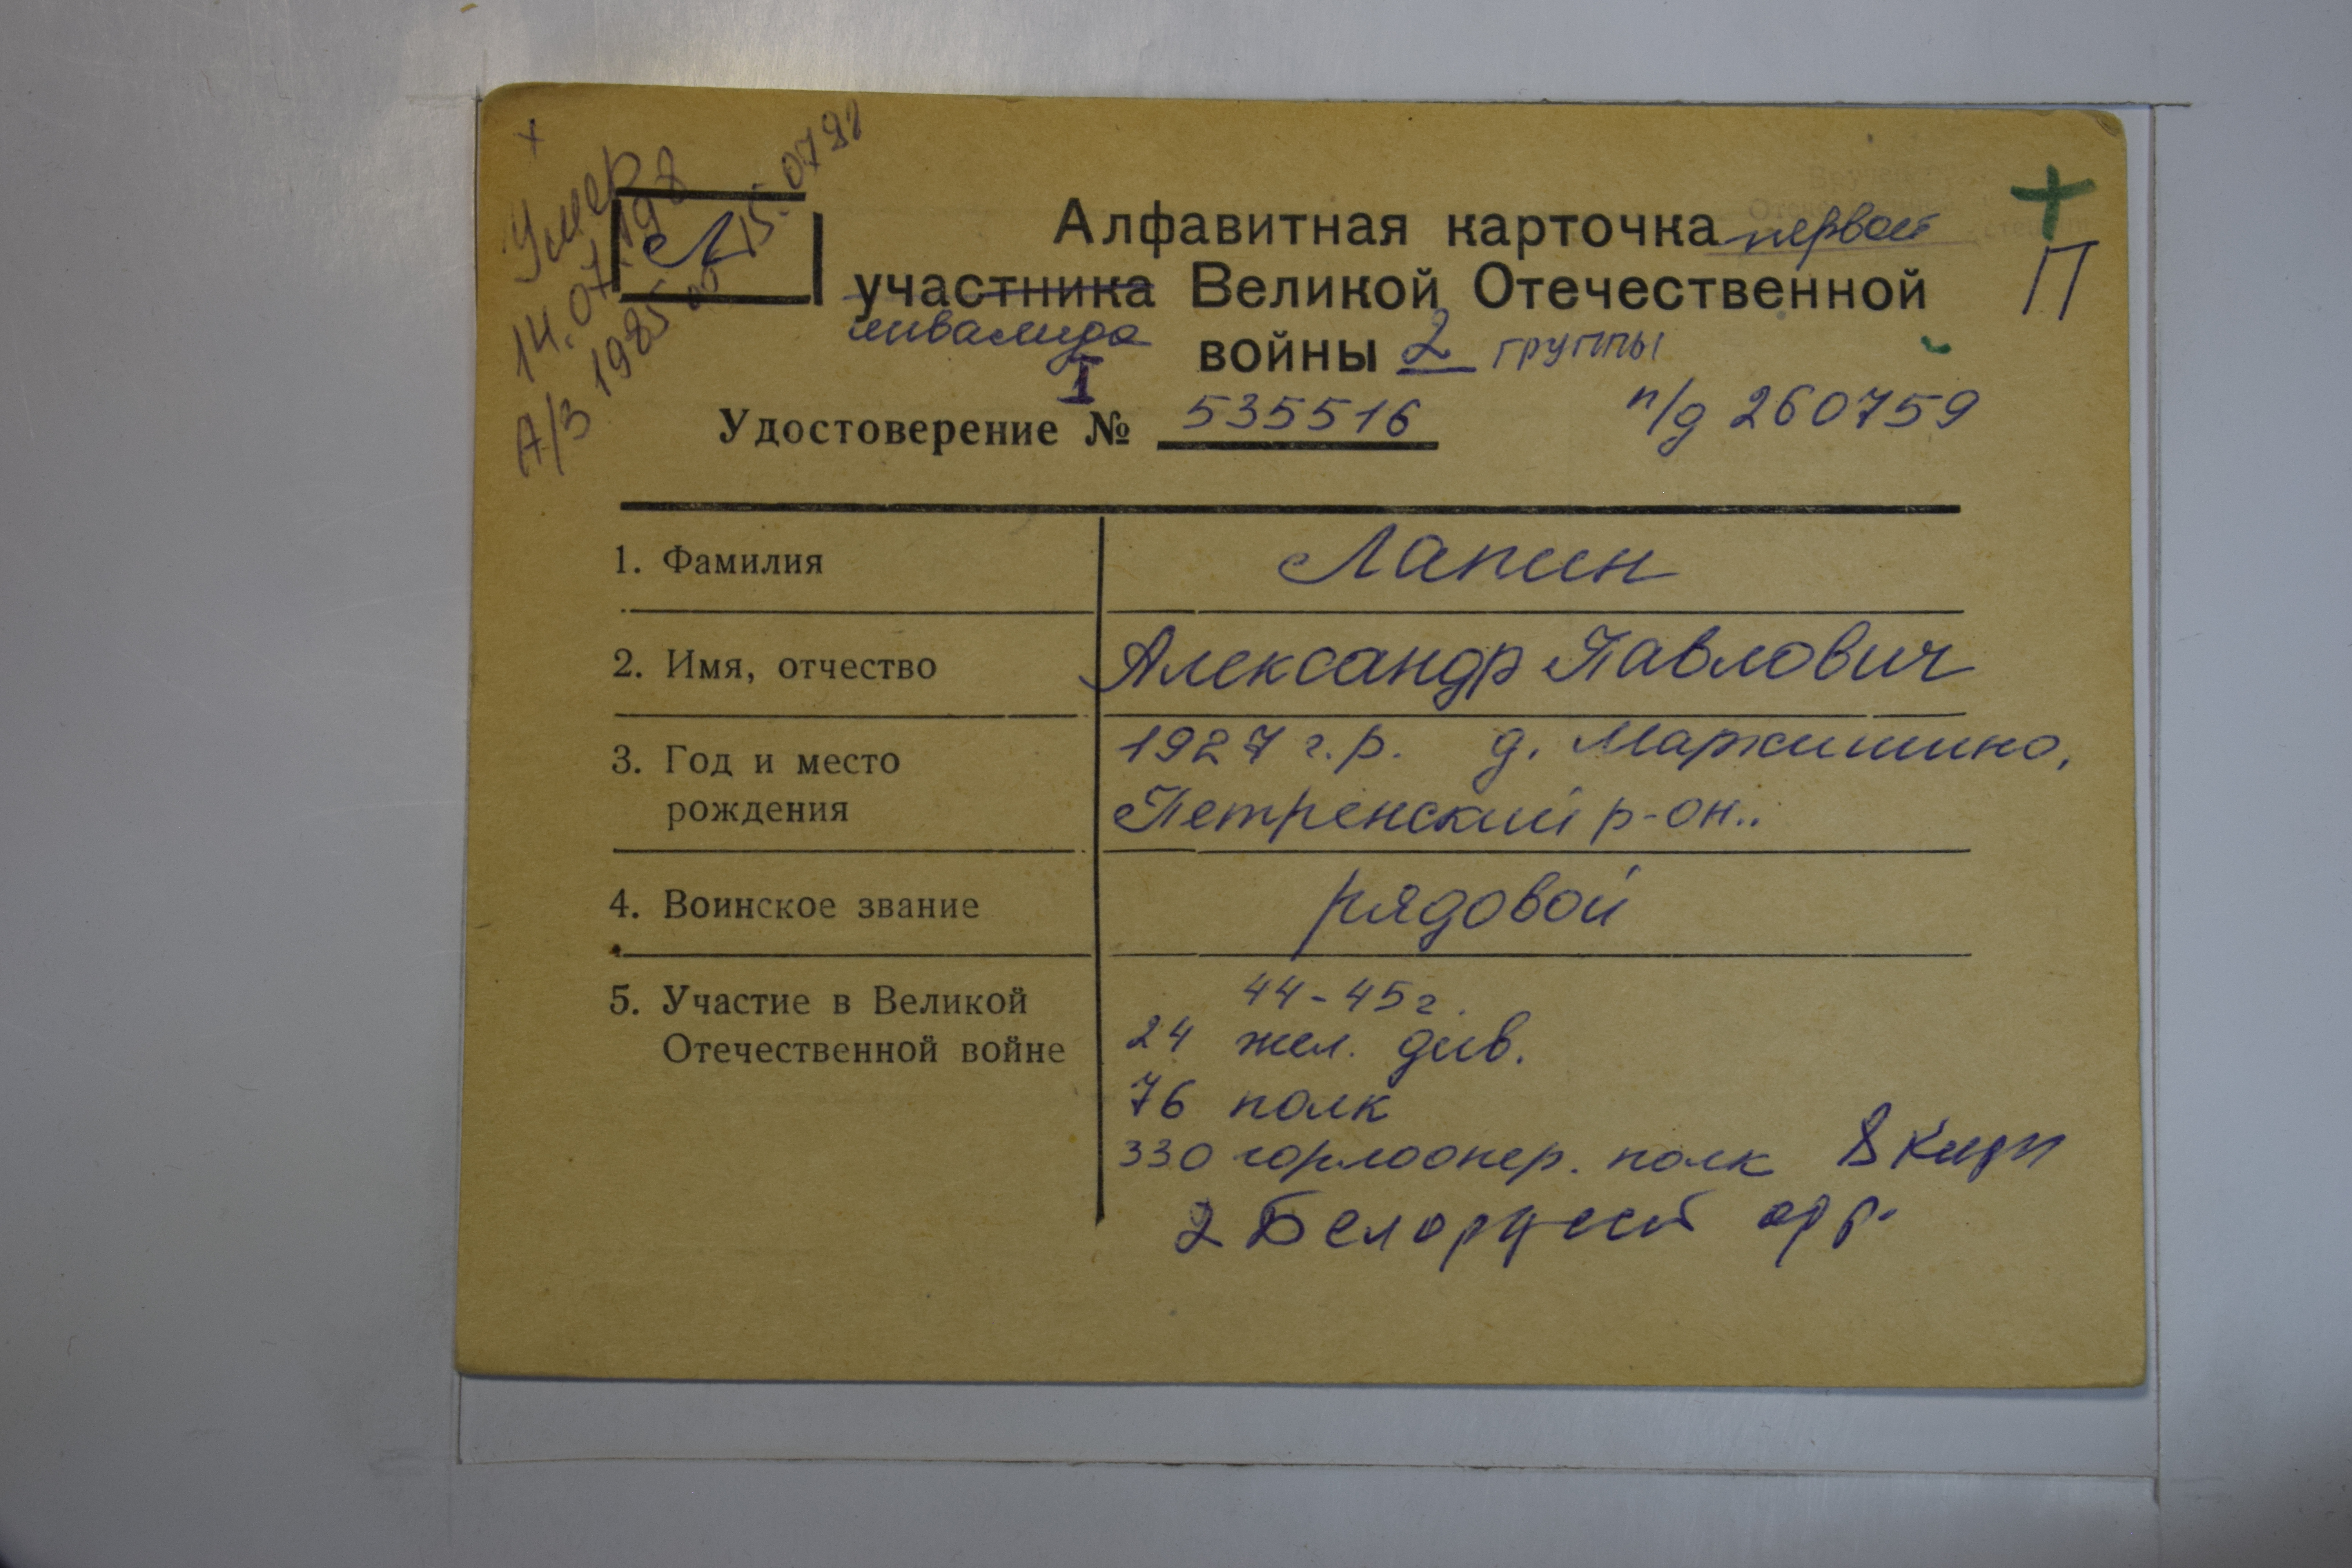 +
Умер
14.07.198
А/З 1985 от 15.0791
Л
Алфавитная карточка первой
участника Великой Отечественной
инвалида
войны 2 группы
+
П
I
Удостоверение № 535516
п/д 260759
1. Фамилия Лапин
2. Имя, отчество Александр Павлович
3. Год и место 1927 г.р. д. Маркишино,
рождения Петренский р-он..
4. Воинское звание рядовой
5. Участие в Великой 44-45г.
Отечественной войне 24 жел. див.
76 полк
330 полк
2